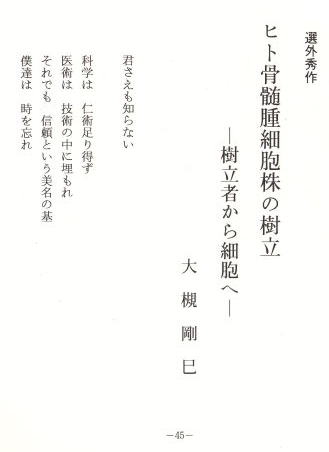 選外秀作
ヒト骨髄腫細胞株の樹立
―樹立者から細胞へ―
大槻剛巳
君さえも知らない
科学は 仁術足り得ず
医術は 技術の中に埋もれ
それでも 信頼という美名の基
僕達は 時を忘れ
―45―